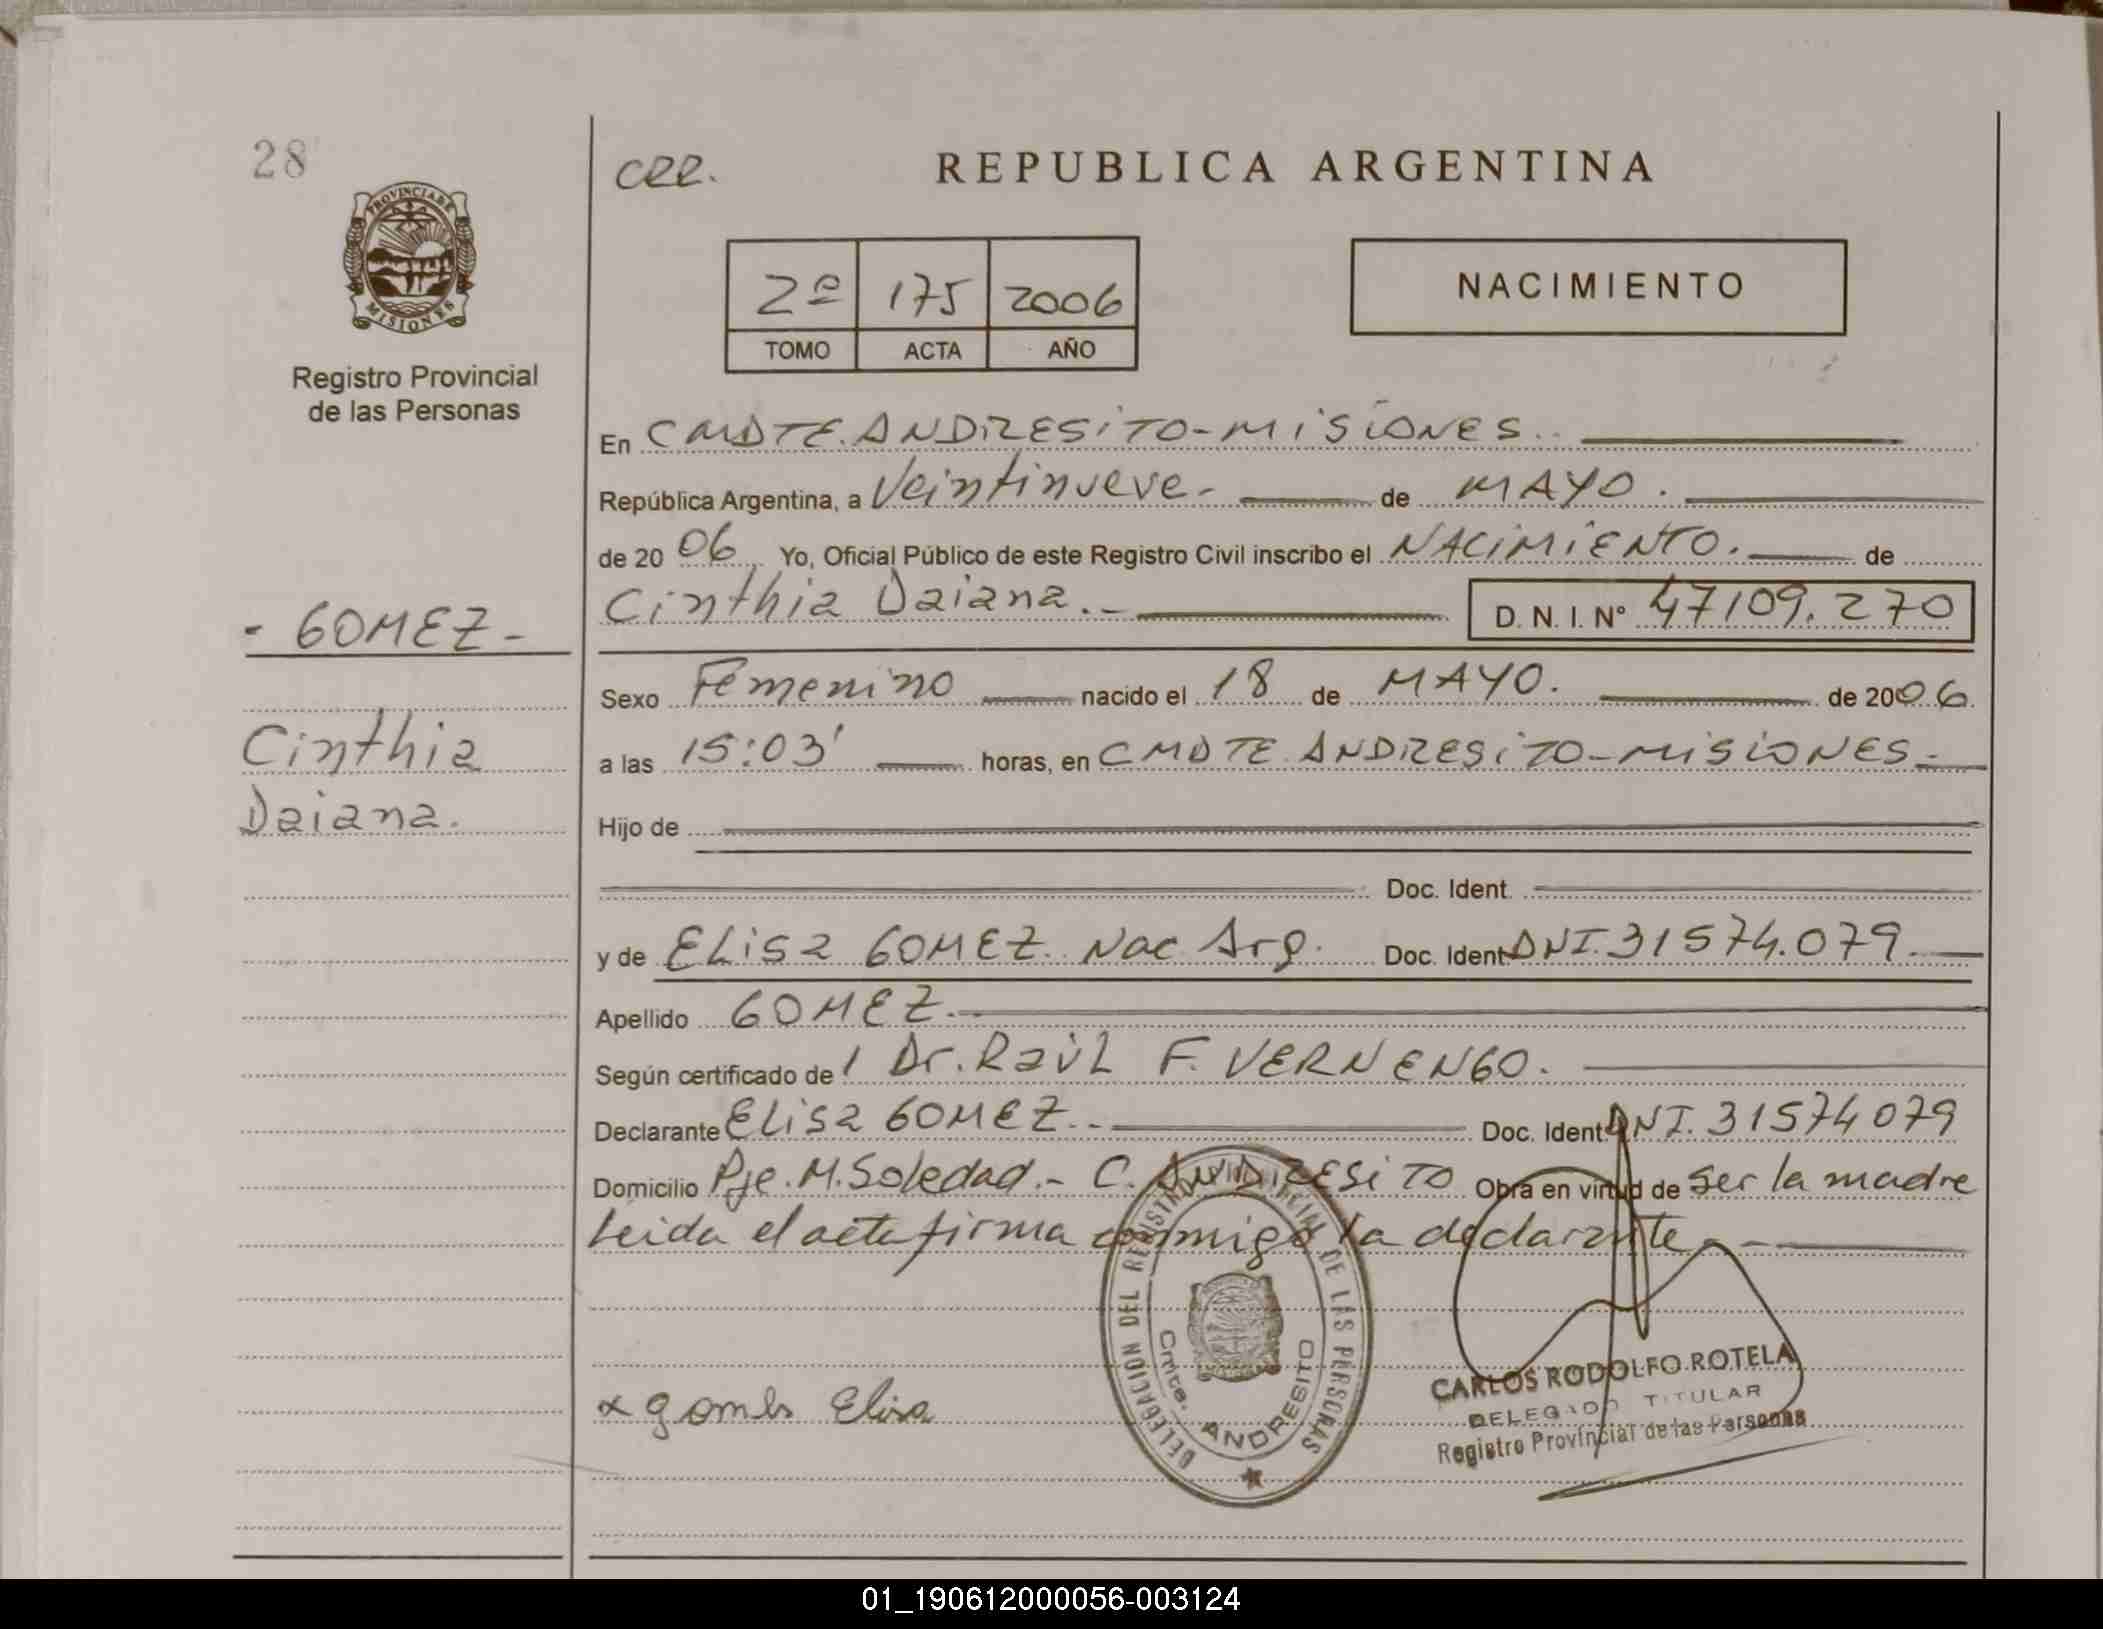 28
cee.
REPUBLICA ARGENTINA
PROVINCIA DE
MISIONES
Registro Provincial
de las Personas
2º 175 2006
TOMO ACTA AÑO
NACIMIENTO
En CMDTE. ANDRESITO-MISIONES.
República Argentina, a Veintinueve. de MAYO.
de 2006 Yo, Oficial Público de este Registro Civil inscribo el NACIMIENTO. de
Cinthia Daiana. D. N. I. Nº 47109.270
- GOMEZ -
Cinthia
Daiana.
Sexo Femenino nacido el 18 de MAYO. de 2006.
a las 15:03' horas, en CMDTE ANDRESITO-MISIONES.
Hijo de
Doc. Ident.
y de ELisa GOMEZ. Nac Arg. Doc. Ident DNI.31574.079.
Apellido GOMEZ.
Según certificado de 1 Dr. RaúL F. VERNENGO.
Declarante ELisa GOMEZ. Doc. Ident DNI. 31574079
Domicilio Pje. M. Soledad.- C. ANDRESITO Obra en virtud de ser la madre
Leida el acta firma conmigo la declarante
DELEGACION DEL REGISTRO PROVINCIAL DE LAS PERSONAS
Cmte. ANDRESITO
x Elisa
CARLOS RODOLFO ROTELA
DELEGADO TITULAR
Registro Provincial de las Personas
01_190612000056-003124